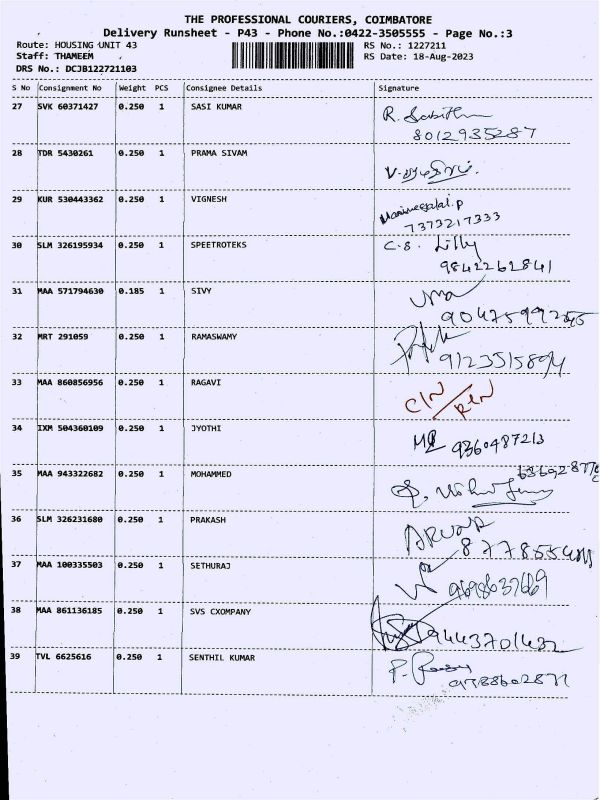 THE PROFESSIONAL COURIERS, COIMBATORE
Delivery Runsheet - P43 - Phone No.:0422-3505555 - Page No.:3
Route: HOUSING UNIT 43 RS No.: 1227211
Staff: THAMEEM RS Date: 18-Aug-2023
DRS No.: DCJB122721103
S No Consignment No Weight PCS Consignee Details Signature
27 SVK 60371427 0.250 1 SASI KUMAR R.
8012935287
28 TDR 5430261 0.250 1 PRAMA SIVAM
29 KUR 530443362 0.250 1 VIGNESH
7373217333
30 SLM 326195934 0.250 1 SPEETROTEKS C.S. Lilly
9842262841
31 MAA 571794630 0.185 1 SIVY Uma
32 MRT 291059 0.250 1 RAMASWAMY
33 MAA 860856956 0.250 1 RAGAVI
34 IXM 504360109 0.250 1 JYOTHI 9360487213
35 MAA 943322682 0.250 1 MOHAMMED
36 SLM 326231680 0.250 1 PRAKASH
37 MAA 100335503 0.250 1 SETHURAJ
38 MAA 861136185 0.250 1 SVS CXOMPANY 9443701432
39 TVL 6625616 0.250 1 SENTHIL KUMAR P.